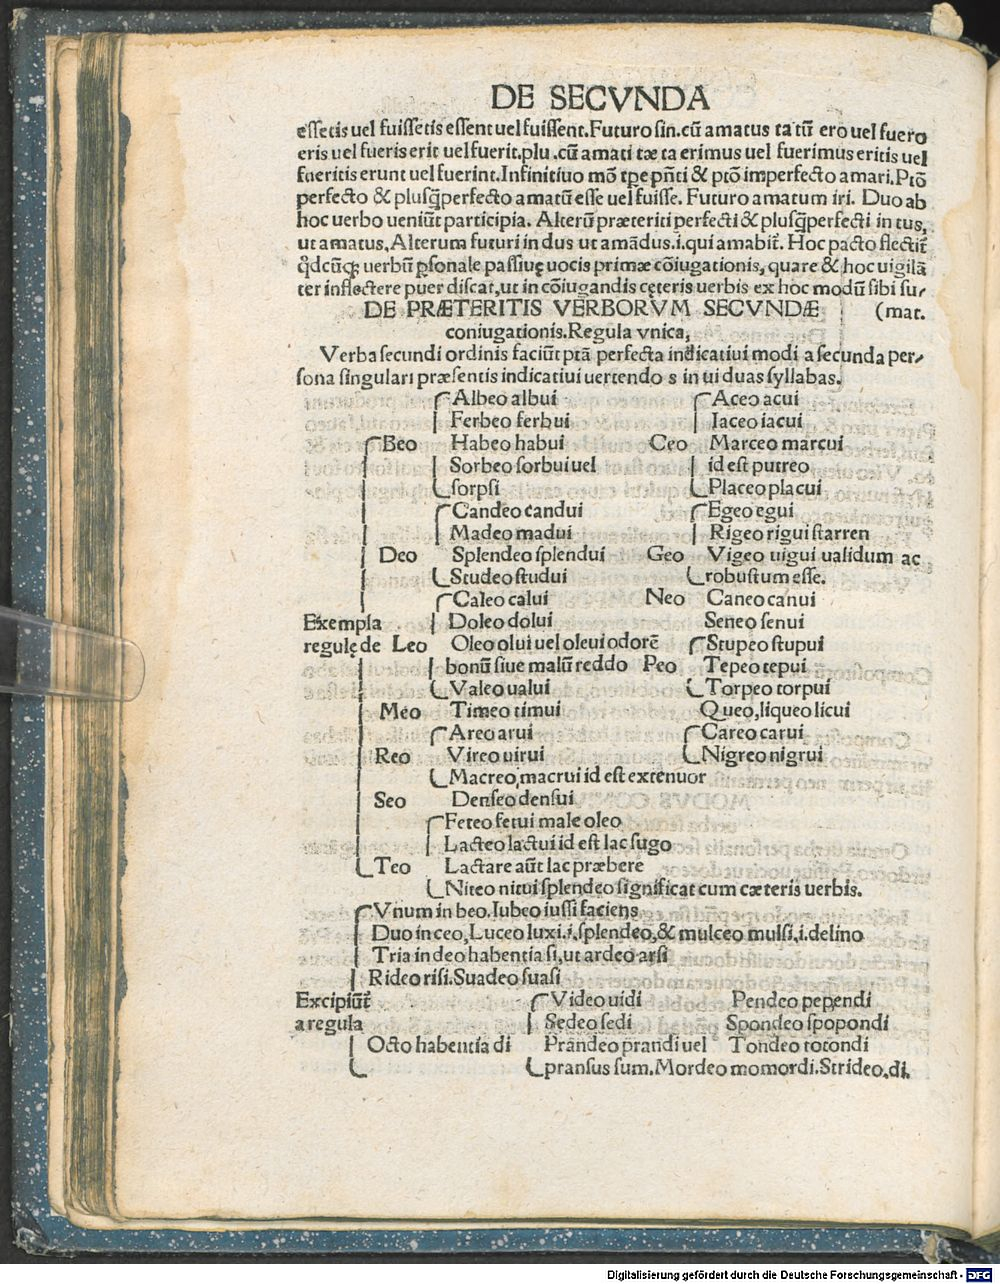 DE SECVNDA
essetis uel fuissetis essent uel fuissent. Futuro sin. cū amatus ta tū ero uel fuero
eris uel fueris erit uel fuerit. plu. cū amati tæ ta erimus uel fuerimus eritis uel
fueritis erunt uel fuerint. Infinitiuo mō tpe pñti & ptō imperfecto amari. Ptō
perfecto & plusq̃perfecto amatū esse uel fuisse. Futuro amatum iri. Duo ab
hoc uerbo ueniūt participia. Alterū præteriti perfecti & plusq̃perfecti in tus,
ut amatus, Alterum futuri in dus ut amādus. i. qui amabit᷑. Hoc pacto flectit᷑
q̊dcūq; uerbū psonale passiuę uocis primæ cōiugationis, quare & hoc uigilā
ter inflectere puer discat, ut in cōiugandis cęteris uerbis ex hoc modū sibi su/
DE PRÆTERITIS VERBORVM SECVNDÆ (mat.
coniugationis. Regula vnica,
Verba secundi ordinis faciūt ptā perfecta indicatiui modi a secunda per/
sona singulari præsentis indicatiui uertendo s in ui duas syllabas.
Albeo albui Aceo acui
Ferbeo ferbui Iaceo iacui
Beo Habeo habui Ceo Marceo marcui
Sorbeo sorbui uel id est putreo
sorpsi Placeo placui
Candeo candui Egeo egui
Madeo madui Rigeo rigui starren
Deo Splendeo splendui Geo Vigeo uigui ualidum ac
Studeo studui robustum esse.
Caleo calui Neo Caneo canui
Exempla Doleo dolui Seneo senui
regulę de Leo Oleo olui uel oleui odorē Stupeo stupui
bonū siue malū reddo Peo Tepeo tepui
Valeo ualui Torpeo torpui
Meo Timeo timui Queo, liqueo licui
Areo arui Careo carui
Reo Vireo uirui Nigreo nigrui
Macreo, macrui id est extenuor
Seo Denseo densui
Feteo fetui male oleo
Lacteo lactui id est lac sugo
Teo Lactare aūt lac præbere
Niteo nitui splendeo significat cum cæteris uerbis.
Vnum in beo. Iubeo iussi faciens
Duo in ceo, Luceo luxi. i. splendeo, & mulceo mulsi, i. delino
Tria in deo habentia si, ut ardeo arsi
Rideo risi. Suadeo suasi
Excipiūt᷑ Video uidi Pendeo pependi
a regula Sedeo sedi Spondeo spopondi
Octo habentia di Prandeo prandi uel Tondeo totondi
pransus sum. Mordeo momordi. Strideo, di.
Digitalisierung gefördert durch die Deutsche Forschungsgemeinschaft - DFG